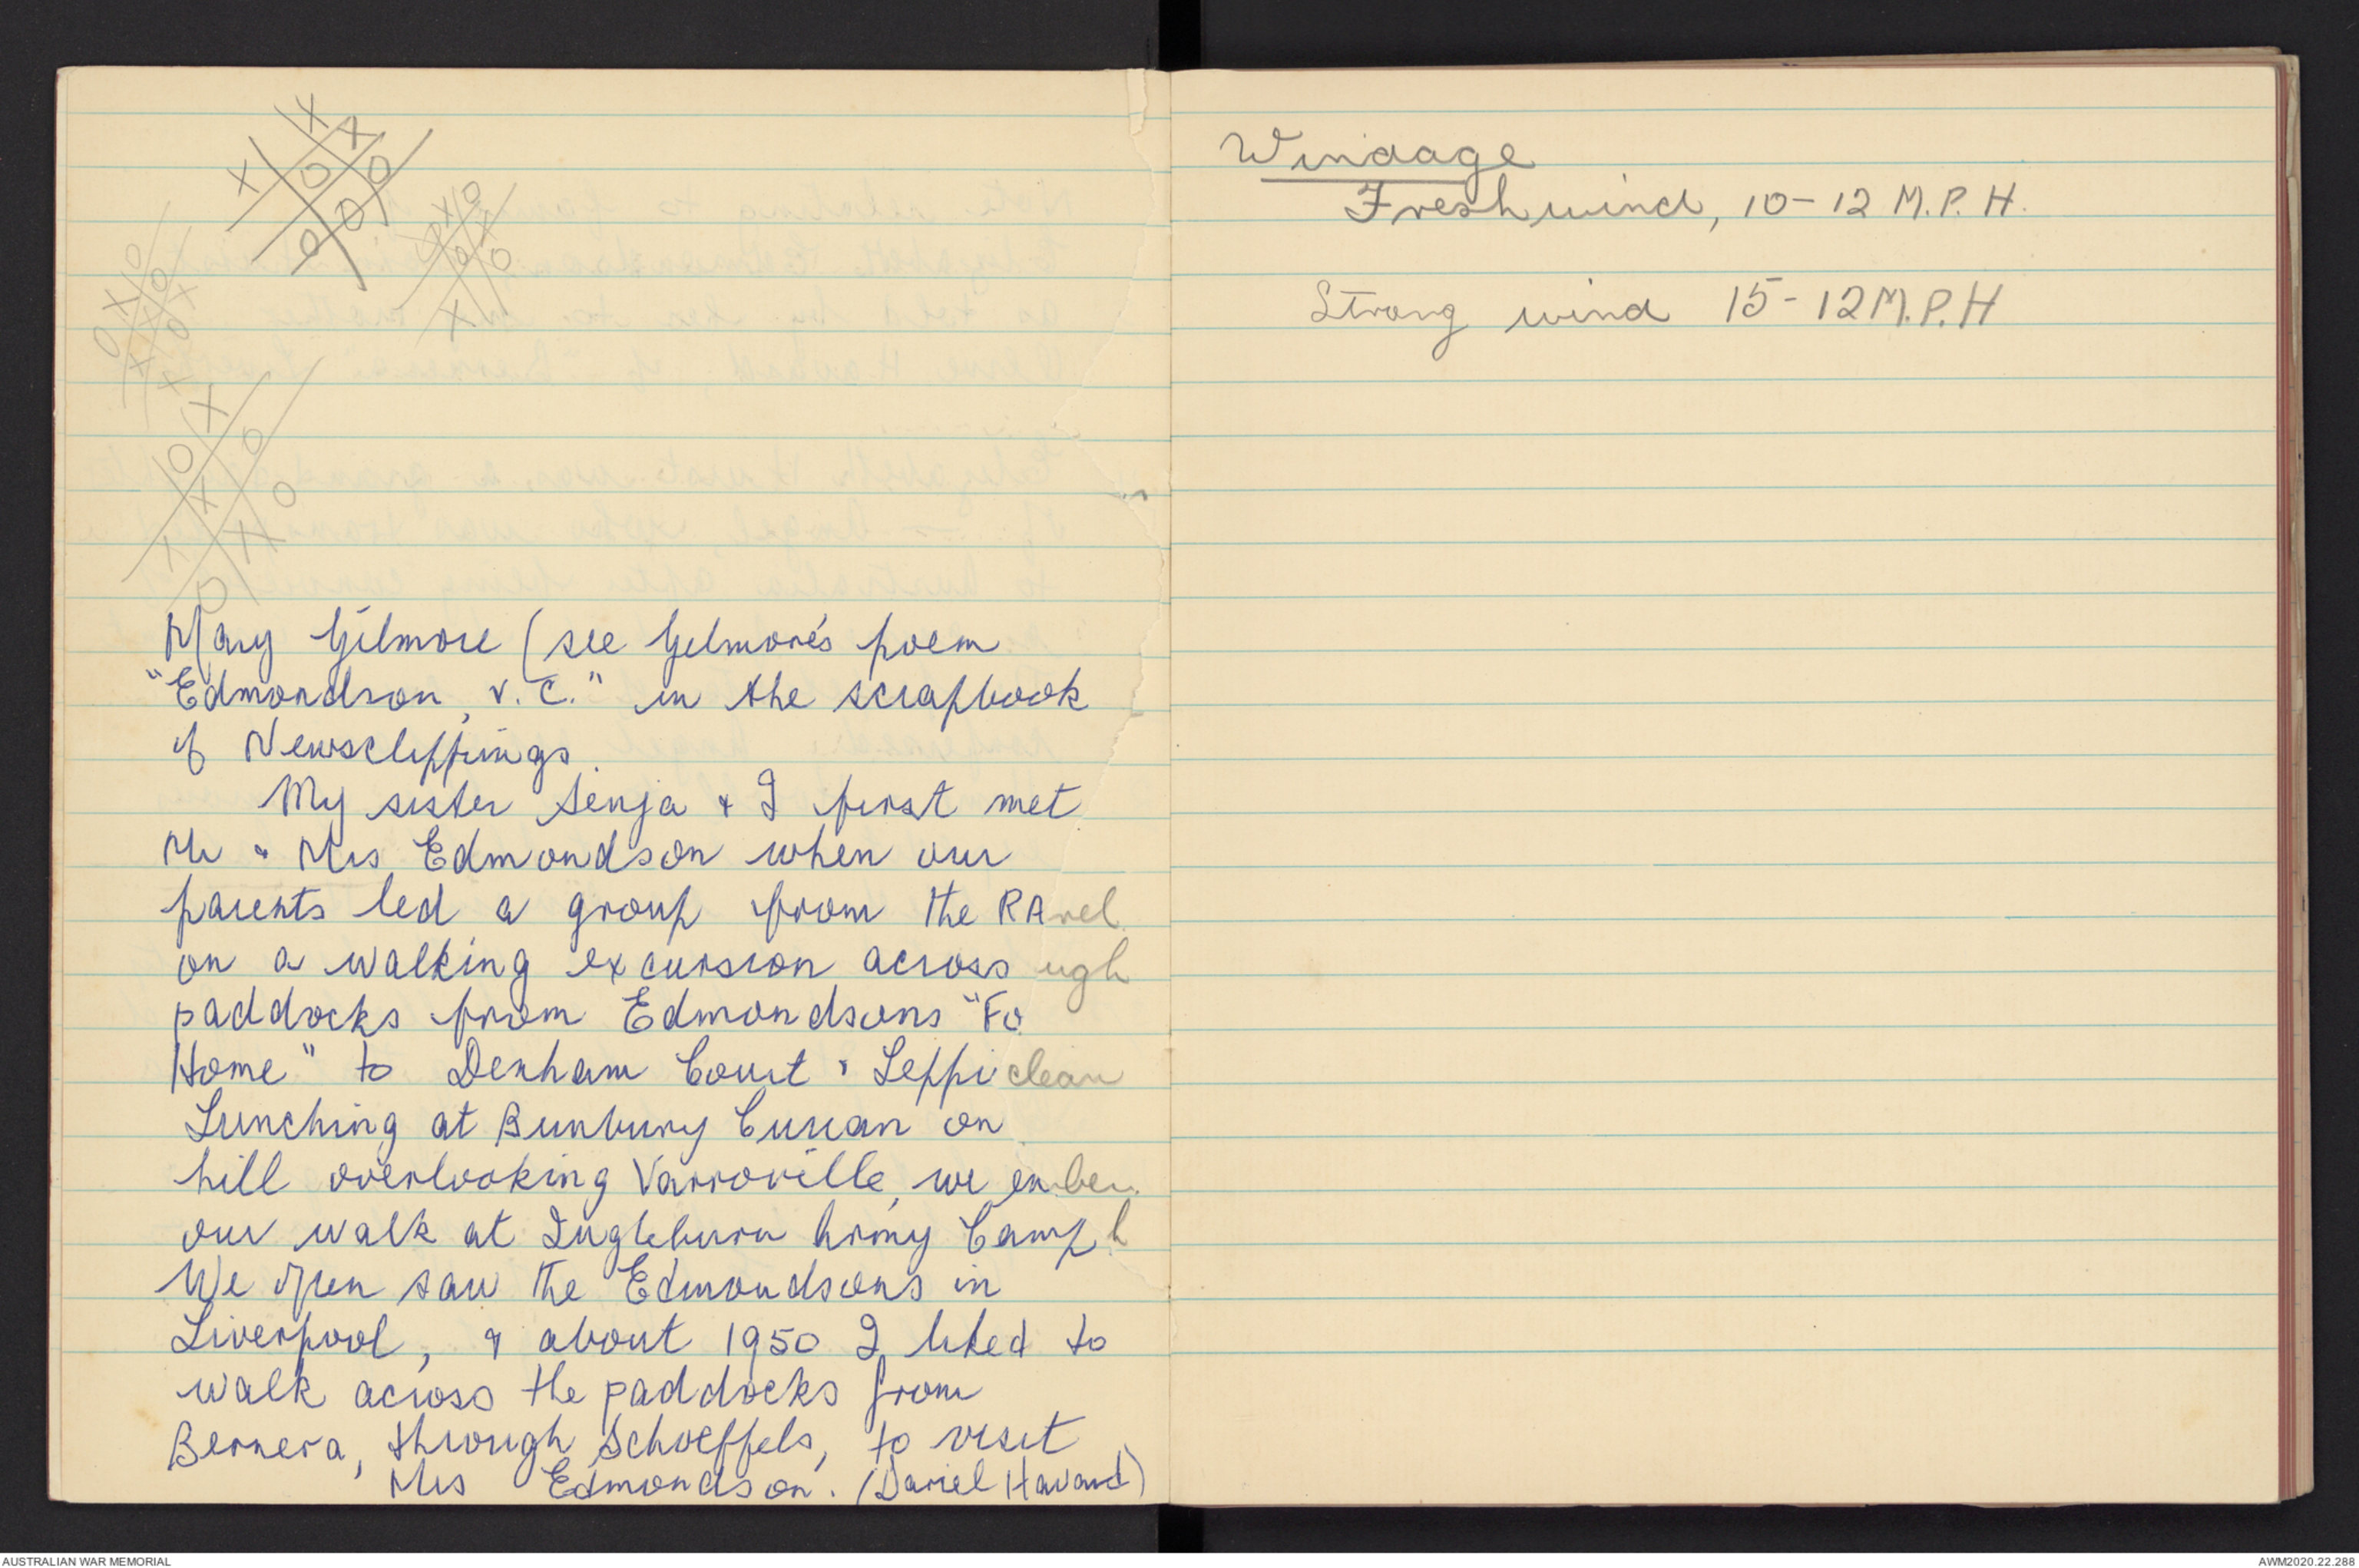 Mary Gilmore (see Gilmore's poem
"Edmondson, V.C." in the scrapbook
of Newsclippings.
My sister Senja & I first met
Mr & Mrs Edmondson when our
parents led a group from the RA
on a walking excursion across ugh
paddocks from Edmondsons "Fo
Home" to Denham Court & Leppi clean
Lunching at Bunbury Curran on
hill overlooking Varroville, we en ber
our walk at Ingleburn Army Camp
We often saw the Edmondsons in
Liverpool, & about 1950 I liked to
walk across the paddocks from
Bernera, through Schoeffels, to visit
Mrs Edmondson. (Dariel Havard)
Windage
Fresh wind, 10-12 M.P.H.
Strong wind 15-12 M.P.H
AUSTRALIAN WAR MEMORIAL
AWM2020.22.288